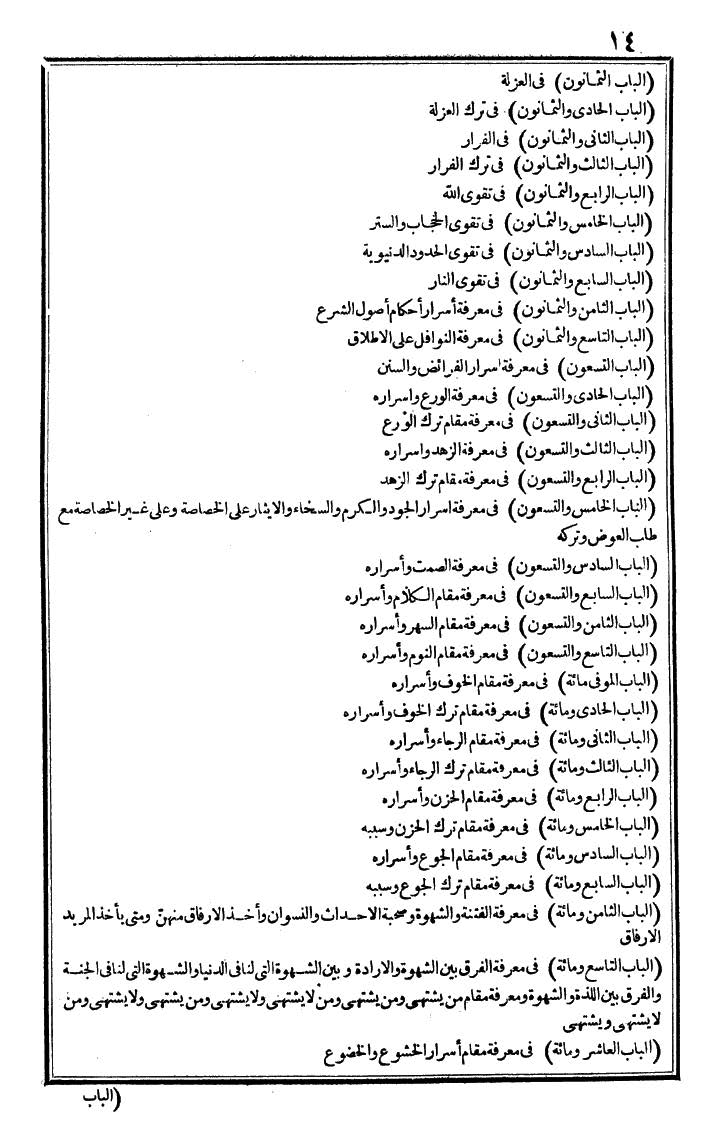 ١٤
(الباب الثمانون) فى العزلة
(الباب الحادى والثمانون) فى ترك العزلة
(الباب الثانى والثمانون) فى الفرار
(الباب الثالث والثمانون) فى ترك الفرار
(الباب الرابع والثمانون) فى تقوى الله
(الباب الخامس والثمانون) فى تقوى الحجاب والستر
(الباب السادس والثمانون) فى تقوى الحدود الدنيوية
(الباب السابع والثمانون) فى تقوى النار
(الباب الثامن والثمانون) فى معرفة أسرار أحكام أصول الشرع
(الباب التاسع والثمانون) فى معرفة النوافل على الاطلاق
(الباب التسعون) فى معرفة اسرار الفرائض والسنن
(الباب الحادى والتسعون) فى معرفة الورع واسراره
(الباب الثانى والتسعون) فى معرفة مقام ترك الورع
(الباب الثالث والتسعون) فى معرفة الزهد واسراره
(الباب الرابع والتسعون) فى معرفة مقام ترك الزهد
(الباب الخامس والتسعون) فى معرفة اسرار الجود والكرم والسخاء والايثار على الخصاصة وعلى غير الخصاصة مع
طلب العوض وتركه
(الباب السادس والتسعون) فى معرفة الصمت وأسراره
(الباب السابع والتسعون) فى معرفة مقام الكلام وأسراره
(الباب الثامن والتسعون) فى معرفة مقام السهر وأسراره
(الباب التاسع والتسعون) فى معرفة مقام النوم وأسراره
(الباب الموفى مائة) فى معرفة مقام الخوف وأسراره
(الباب الحادى ومائة) فى معرفة مقام ترك الخوف وأسراره
(الباب الثانى ومائة) فى معرفة مقام الرجاء وأسراره
(الباب الثالث ومائة) فى معرفة مقام ترك الرجاء وأسراره
(الباب الرابع ومائة) فى معرفة مقام الحزن وأسراره
(الباب الخامس ومائة) فى معرفة مقام ترك الحزن وسببه
(الباب السادس ومائة) فى معرفة مقام الجوع وأسراره
(الباب السابع ومائة) فى معرفة مقام ترك الجوع وسببه
(الباب الثامن ومائة) فى معرفة الفتنة والشهوة وصحبة الاحداث والنسوان وأخذ الارفاق منهنّ ومتى يأخذ المريد
الارفاق
(الباب التاسع ومائة) فى معرفة الفرق بين الشهوة والارادة وبين الشهوة التى لنا فى الدنيا والشهوة التى لنا فى الجنة
والفرق بين اللذة والشهوة ومعرفة مقام من يشتهى ومن يشتهى ومن لا يشتهى ولا يشتهى ومن يشتهى ولا يشتهى ومن
لا يشتهى ويشتهى
(الباب العاشر ومائة) فى معرفة مقام أسرار الخشوع والخضوع
(الباب